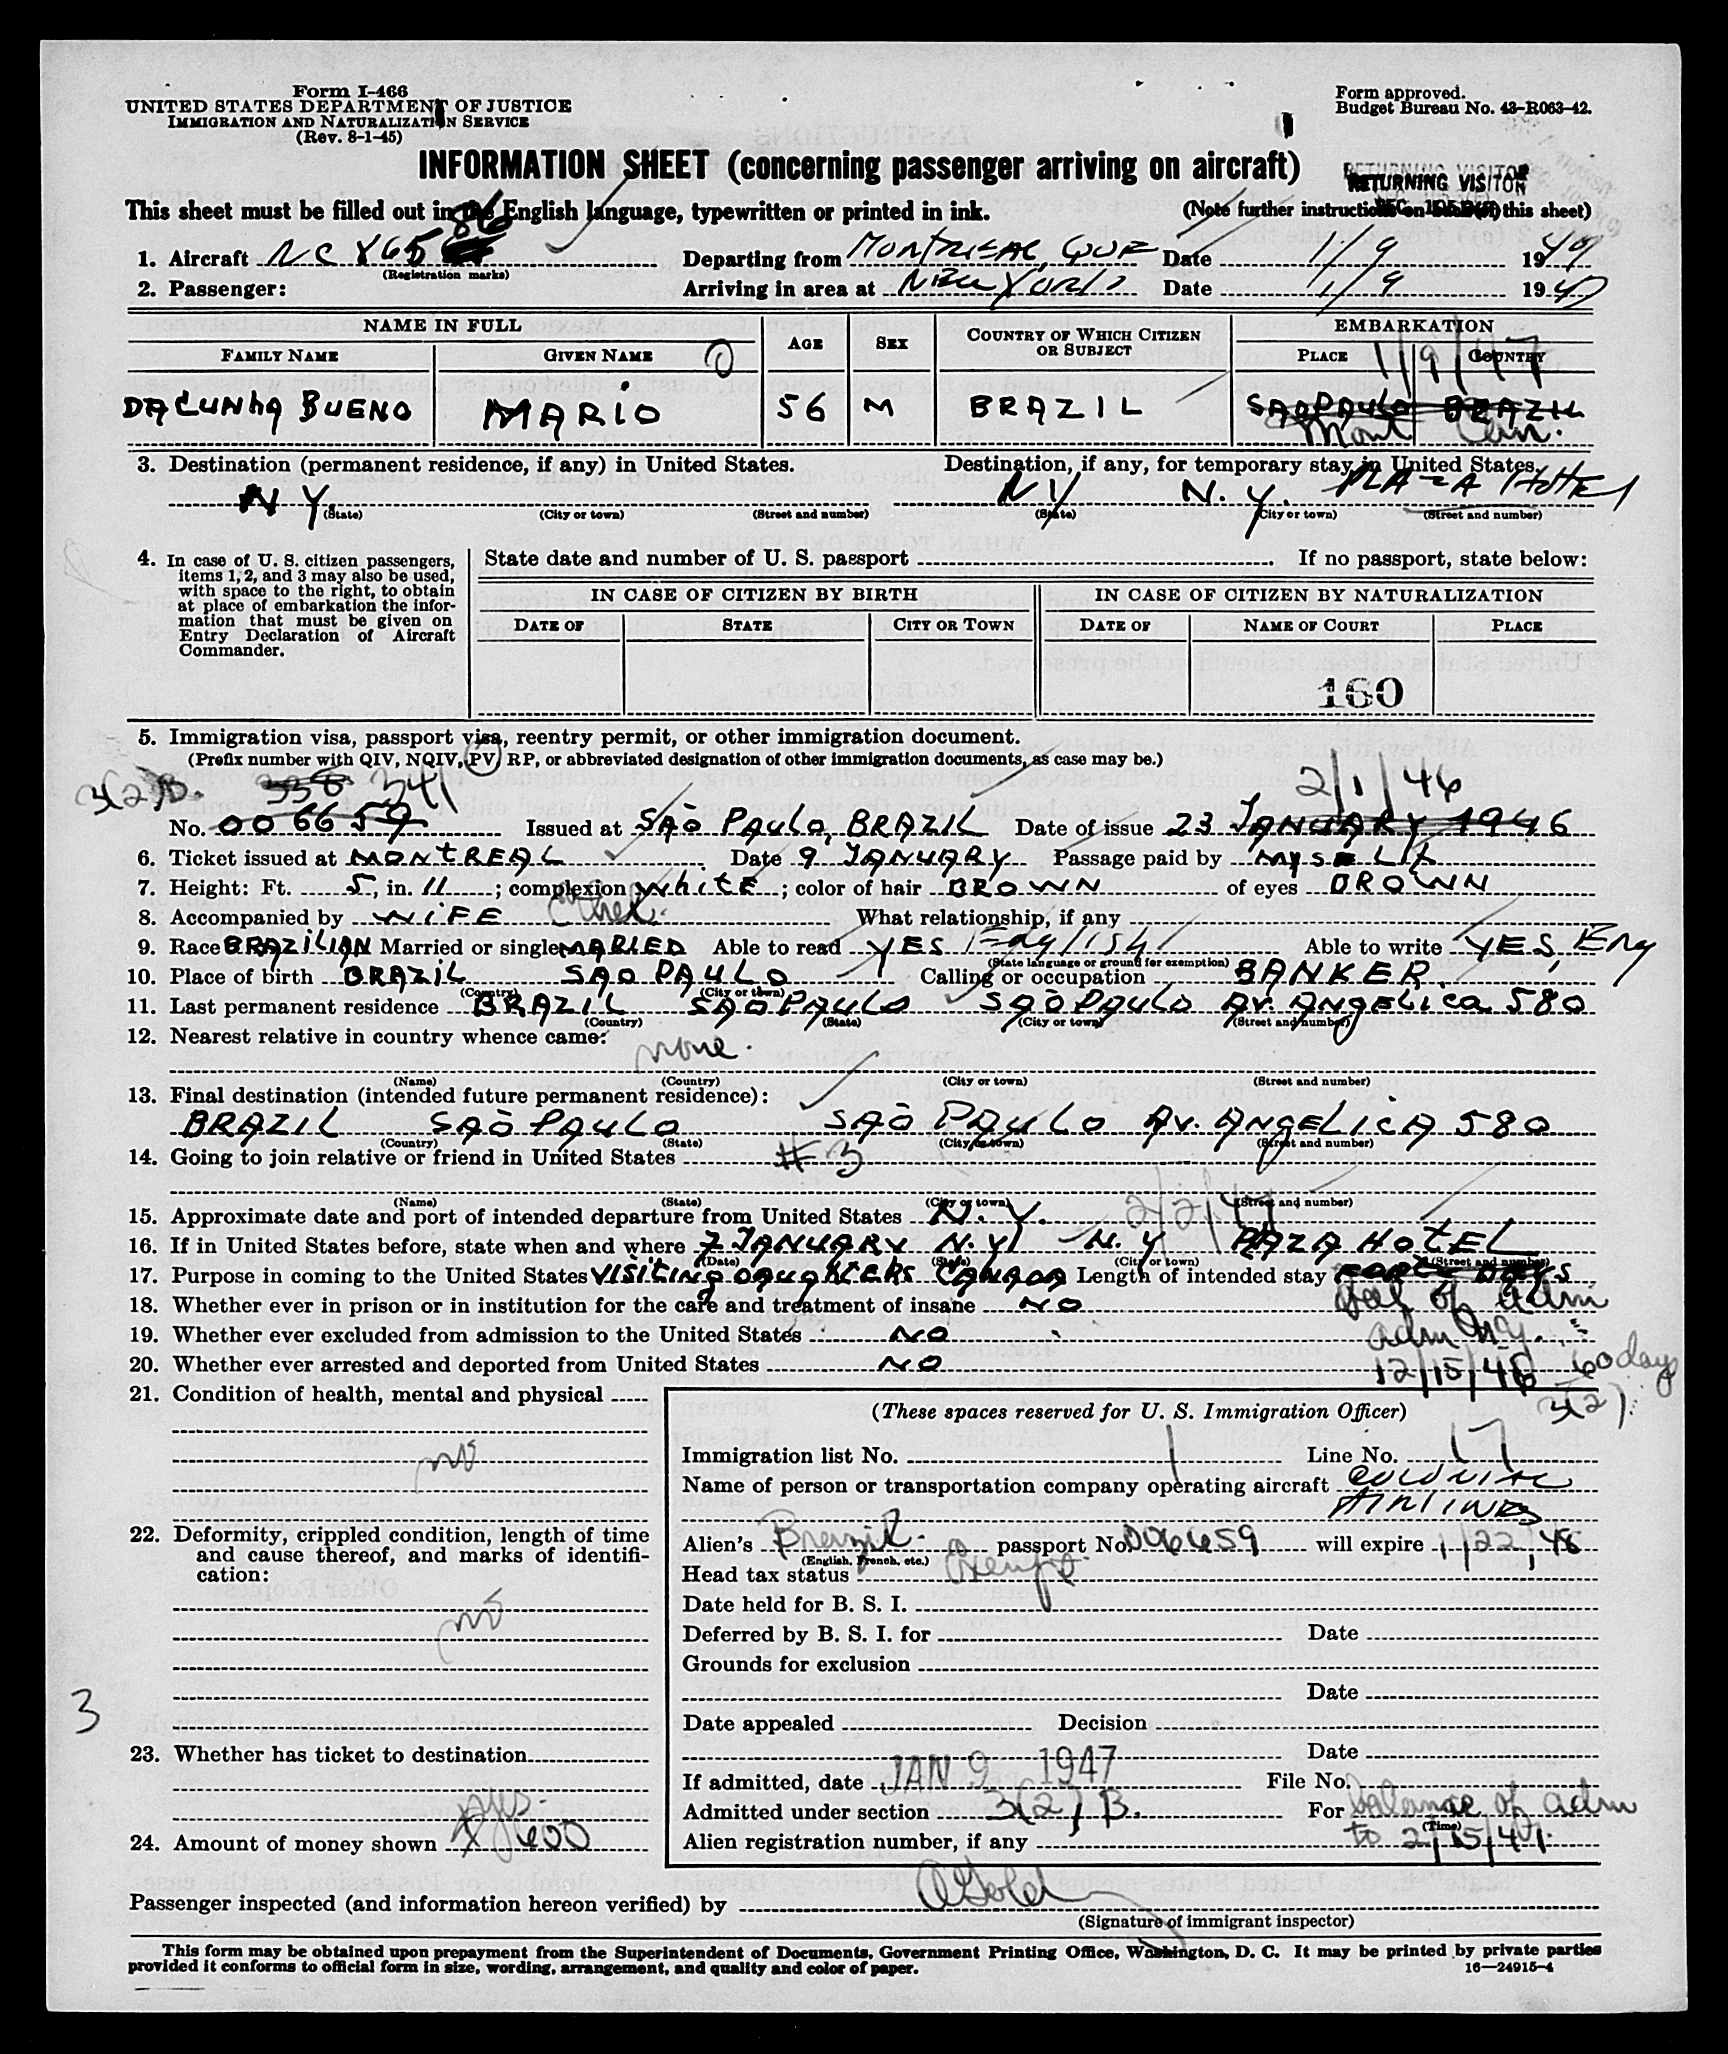 Form I-466
UNITED STATES DEPARTMENT OF JUSTICE
IMMIGRATION AND NATURALIZATION SERVICE
(Rev. 8-1-45)
Form approved.
Budget Bureau No. 43-R063-42.
INFORMATION SHEET (concerning passenger arriving on aircraft)
RETURNING VISITOR
This sheet must be filled out in the English language, typewritten or printed in ink.
(Note further instructions on back of this sheet)
1. Aircraft NC 86
(Registration marks)
Departing from MONTREAL, QUE Date 1/9 1947
2. Passenger: Arriving in area at NEW YORK Date 1/9 1947
NAME IN FULL AGE SEX COUNTRY OF WHICH CITIZEN OR SUBJECT EMBARKATION
FAMILY NAME GIVEN NAME PLACE COUNTRY
1/9/47
DA CUNHA BUENO MARIO 56 M BRAZIL SAO PAULO BRAZIL
Mont Can.
3. Destination (permanent residence, if any) in United States. Destination, if any, for temporary stay in United States.
N Y N Y N. Y. PLAZA HOTEL
(State) (City or town) (Street and number) (State) (City or town) (Street and number)
4. In case of U. S. citizen passengers, items 1, 2, and 3 may also be used, with space to the right, to obtain at place of embarkation the information that must be given on Entry Declaration of Aircraft Commander.
State date and number of U. S. passport If no passport, state below:
IN CASE OF CITIZEN BY BIRTH IN CASE OF CITIZEN BY NATURALIZATION
DATE OF STATE CITY OR TOWN DATE OF NAME OF COURT PLACE
160
5. Immigration visa, passport visa, reentry permit, or other immigration document.
(Prefix number with QIV, NQIV, PV, RP, or abbreviated designation of other immigration documents, as case may be.)
3(2)B. 338 341 2/1/46
No. 006659 Issued at SÃO PAULO, BRAZIL Date of issue 23 JANUARY 1946
6. Ticket issued at MONTREAL Date 9 JANUARY Passage paid by MYSELF
7. Height: Ft. 5, in. 11; complexion WHITE; color of hair BROWN of eyes BROWN
8. Accompanied by WIFE What relationship, if any
9. Race BRAZILIAN Married or single MARIED Able to read YES English Able to write YES, Eng
(State language or ground for exemption)
10. Place of birth BRAZIL SAO PAULO Calling or occupation BANKER
(Country) (City or town)
11. Last permanent residence BRAZIL SÃO PAULO SÃO PAULO AV. ANGELICA 580
(Country) (State) (City or town) (Street and number)
12. Nearest relative in country whence came:
none.
(Name) (Country) (City or town) (Street and number)
13. Final destination (intended future permanent residence):
BRAZIL SÃO PAULO SÃO PAULO AV. ANGELICA 580
(Country) (State) (City or town) (Street and number)
14. Going to join relative or friend in United States #3
(Name) (State) (City or town) (Street and number)
15. Approximate date and port of intended departure from United States N.Y. 2/2/47
16. If in United States before, state when and where 7 JANUARY N.Y. N.Y PLAZA HOTEL
(Date) (State) (City or town) (Street and number)
17. Purpose in coming to the United States VISITING DAUGHTERS CANADA Length of intended stay DAYS
18. Whether ever in prison or in institution for the care and treatment of insane NO
bal of adm
19. Whether ever excluded from admission to the United States NO
adm N.Y.
20. Whether ever arrested and deported from United States NO
12/15/46 60 days
3(2)
21. Condition of health, mental and physical
no
22. Deformity, crippled condition, length of time and cause thereof, and marks of identification:
no
3
23. Whether has ticket to destination
yes.
24. Amount of money shown $ 400
(These spaces reserved for U. S. Immigration Officer)
Immigration list No. 1 Line No. 17
Name of person or transportation company operating aircraft COLONIAL
AIRLINES
Alien's Brazil. passport No. 006659 will expire 1/22/48
(English, French, etc.)
Head tax status Exempt.
Date held for B. S. I.
Deferred by B. S. I. for Date
Grounds for exclusion
Date
Date appealed Decision
Date
If admitted, date JAN 9 1947 File No.
Admitted under section 3(2) B. For balance of adm
(Time)
to 2/15/47.
Alien registration number, if any
Passenger inspected (and information hereon verified) by
(Signature of immigrant inspector)
This form may be obtained upon prepayment from the Superintendent of Documents, Government Printing Office, Washington, D. C. It may be printed by private parties
provided it conforms to official form in size, wording, arrangement, and quality and color of paper.
16—24915-4